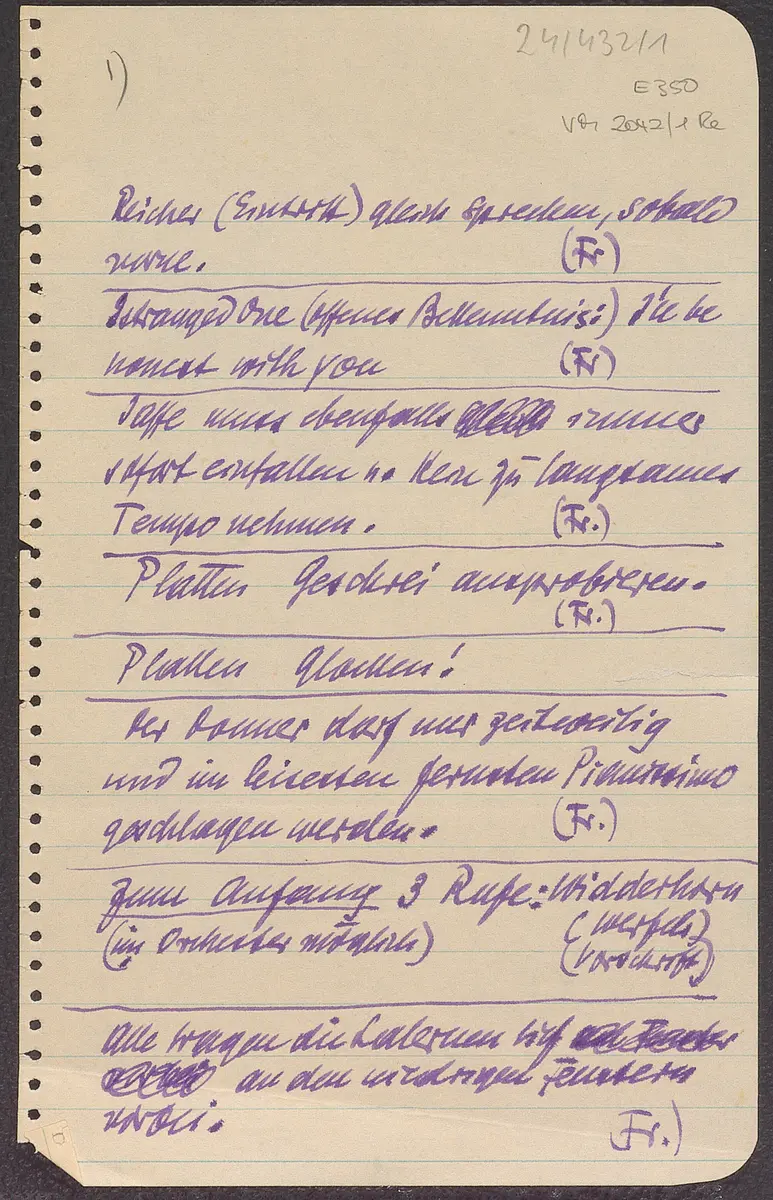 24/432/1
E350
1)
VM 2042/1 Re
Reicher (Eintritt) gleich sprechen, sobald
vorne. (Fr)
Estranged One (offenes Bekenntnis:) I'll be
honest with you (Fr)
muss ebenfalls immer
sofort einfallen u. kein zu langsames
Tempo nehmen. (Fr.)
Platten Geschrei ausprobieren.
(Fr.)
Platten Glocken!
Der Donner darf nur zeitweilig
und im leisesten fernsten Pianissimo
geschlagen werden. (Fr.)
Zum Anfang 3 Rufe: Widderhorn
(im Orchester möglich) (Werfels)
(Vorschrift)
Alle tragen die Laternen tief
an den niedrigen Fenstern
vorbei. Fr.)